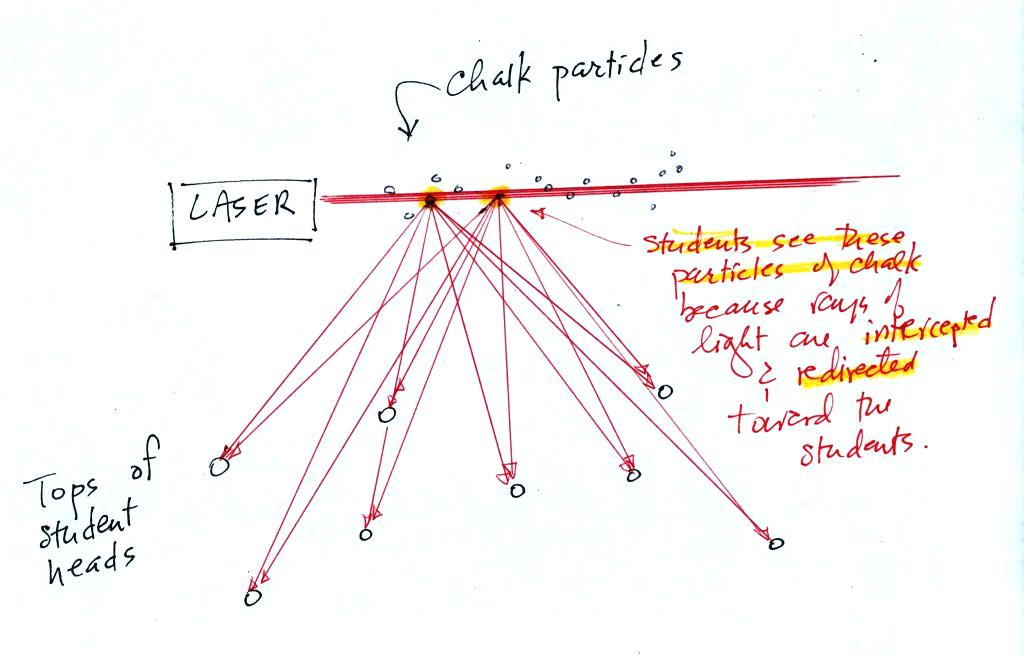 Chalk particles
LASER
Students see these
particles of chalk
because rays of
light are intercepted
& redirected
toward the
students.
Tops of
student
heads